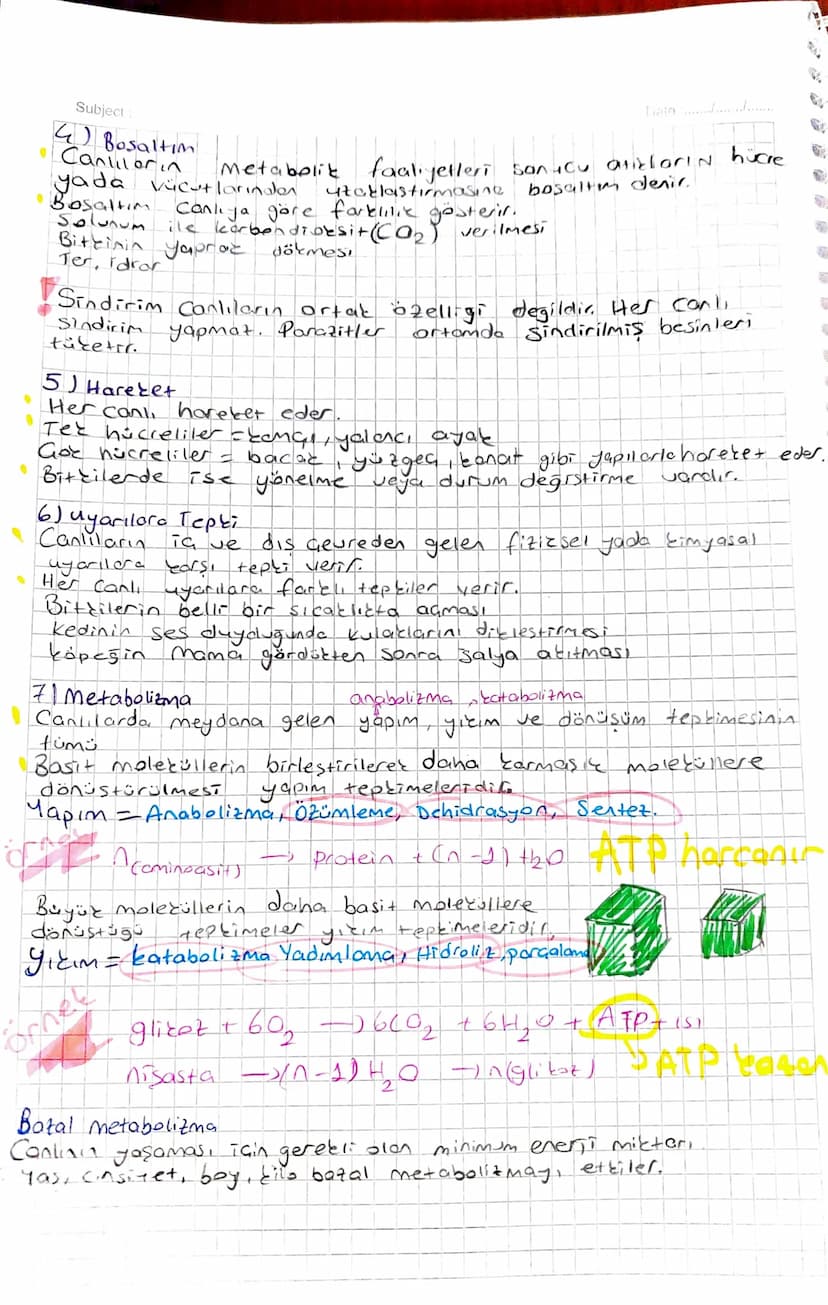 Subject :
Tarih ....../....../......
4) Boşaltım
Canlıların metabolik faaliyetleri sonucu atıkların hücre
yada vücutlarından uzaklaştırmasına boşaltım denir.
Boşaltım canlıya göre farklılık gösterir.
Solunum ile karbondioksit (CO2) verilmesi
Bitkinin yaprak dökmesi
Ter, idrar
! Sindirim canlıların ortak özelliği değildir. Her canlı
sindirim yapmaz. Parazitler ortamda sindirilmiş besinleri
tüketir.
5) Hareket
Her canlı hareket eder.
Tek hücreliler = kamçı, yalancı ayak
Çok hücreliler = bacak, yüzgeç, kanat gibi yapılarla hareket eder.
Bitkilerde ise yönelme veya durum değiştirme vardır.
6) Uyarılara Tepki
Canlıların iç ve dış çevreden gelen fiziksel yada kimyasal
uyarılara karşı tepki verir.
Her canlı uyarılara farklı tepkiler verir.
Bitkilerin belli bir sıcaklıkta açması
kedinin ses duyduğunda kulaklarını dikleştirmesi
köpeğin mama gördükten sonra salya akıtması
7) Metabolizma
anabolizma, katabolizma
Canlılarda meydana gelen yapım, yıkım ve dönüşüm tepkimesinin
tümü
Basit moleküllerin birleştirilerek daha karmaşık moleküllere
dönüştürülmesi yapım tepkimeleridir.
Yapım = Anabolizma, Özümleme, Dehidrasyon, Sentez.
örnek n(aminoasit) → Protein + (n-1) H2O ATP harcanır
Büyük moleküllerin daha basit moleküllere
dönüştüğü tepkimeler yıkım tepkimeleridir.
Yıkım = katabolizma Yadımlama, Hidroliz, parçalama
örnek glikoz + 6O2 → 6CO2 + 6H2O + ATP + ısı
nişasta → (n-1) H2O → n(glikoz) ATP kazan
Bazal metabolizma
Canlının yaşaması için gerekli olan minimum enerji miktarı
Yaş, cinsiyet, boy, kilo bazal metabolizmayı etkiler.